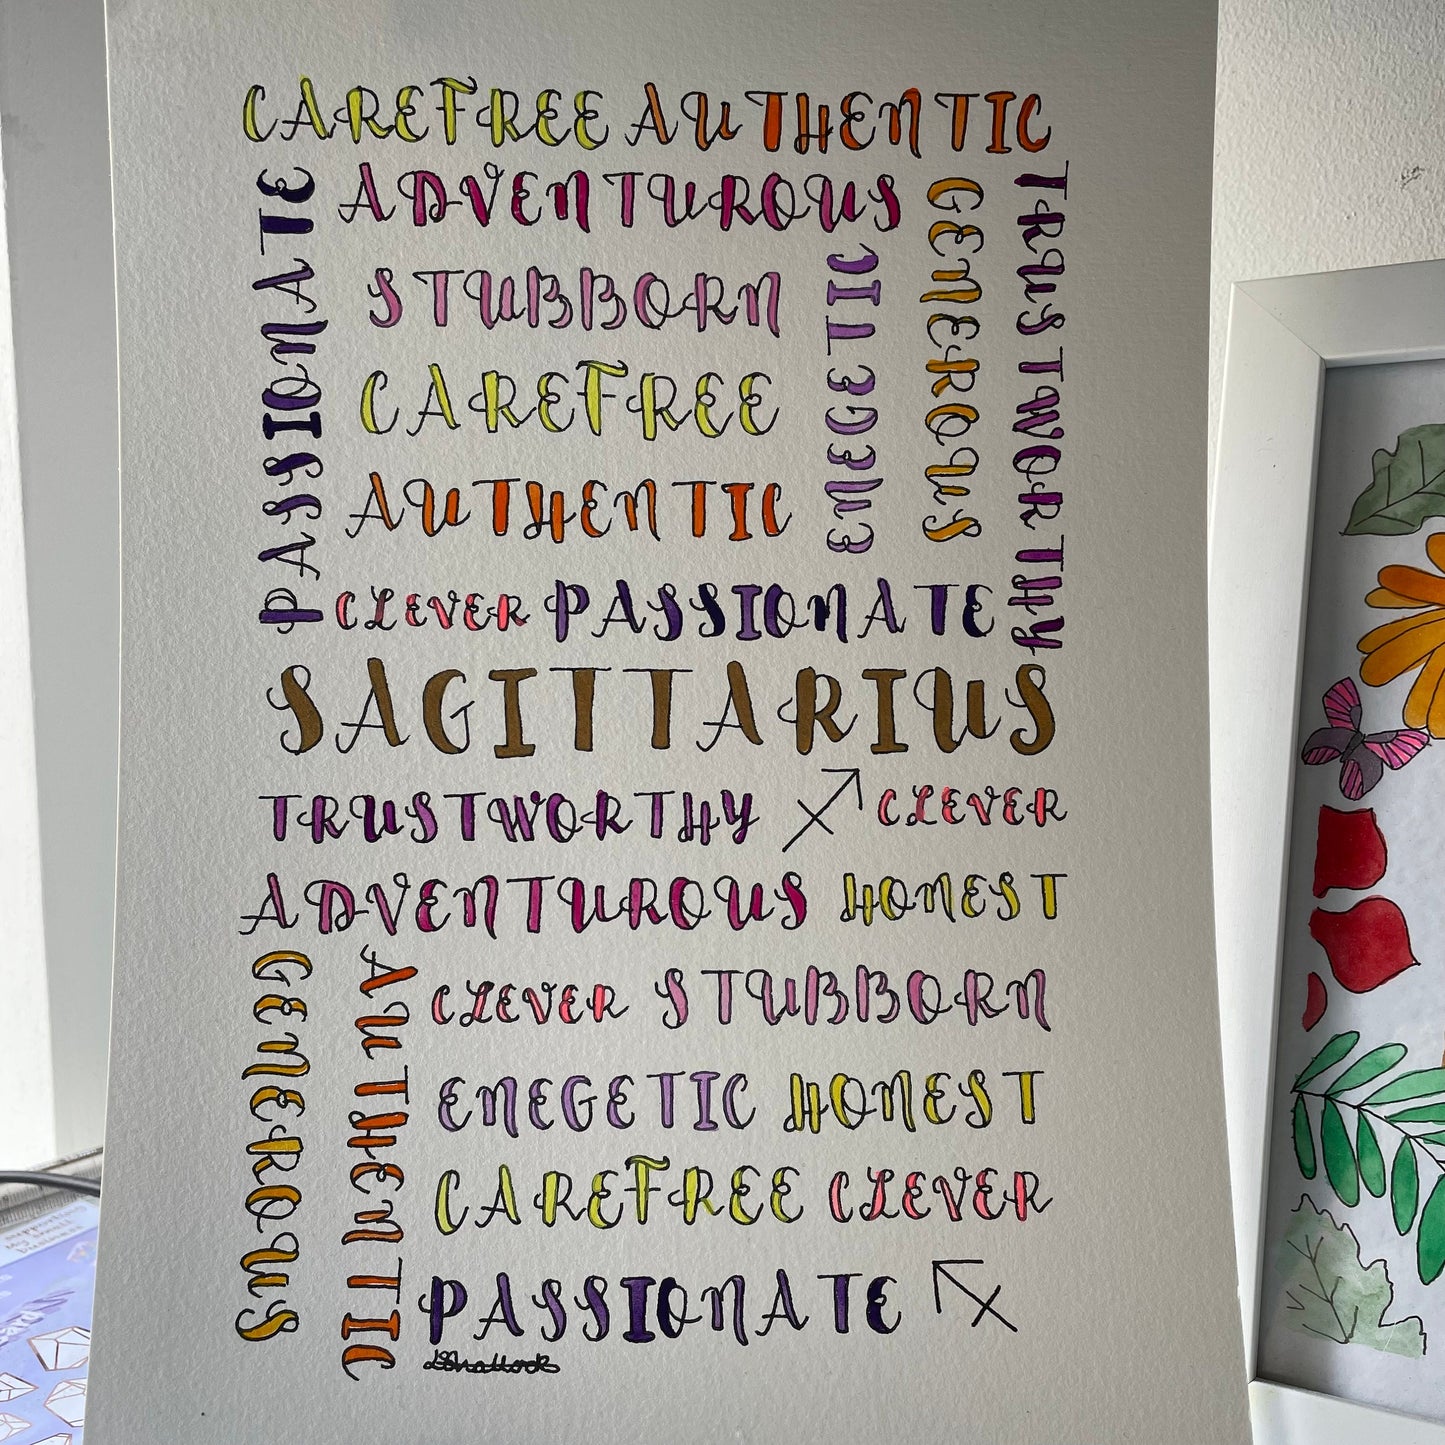 CAREFREE AUTHENTIC
PASSIONATE
ADVENTUROUS
GENEROUS
TRUSTWORTHY
STUBBORN
ENEGETIC
CAREFREE
AUTHENTIC
CLEVER PASSIONATE
SAGITTARIUS
TRUSTWORTHY CLEVER
ADVENTUROUS HONEST
GENEROUS
AUTHENTIC
CLEVER STUBBORN
ENEGETIC HONEST
CAREFREE CLEVER
PASSIONATE